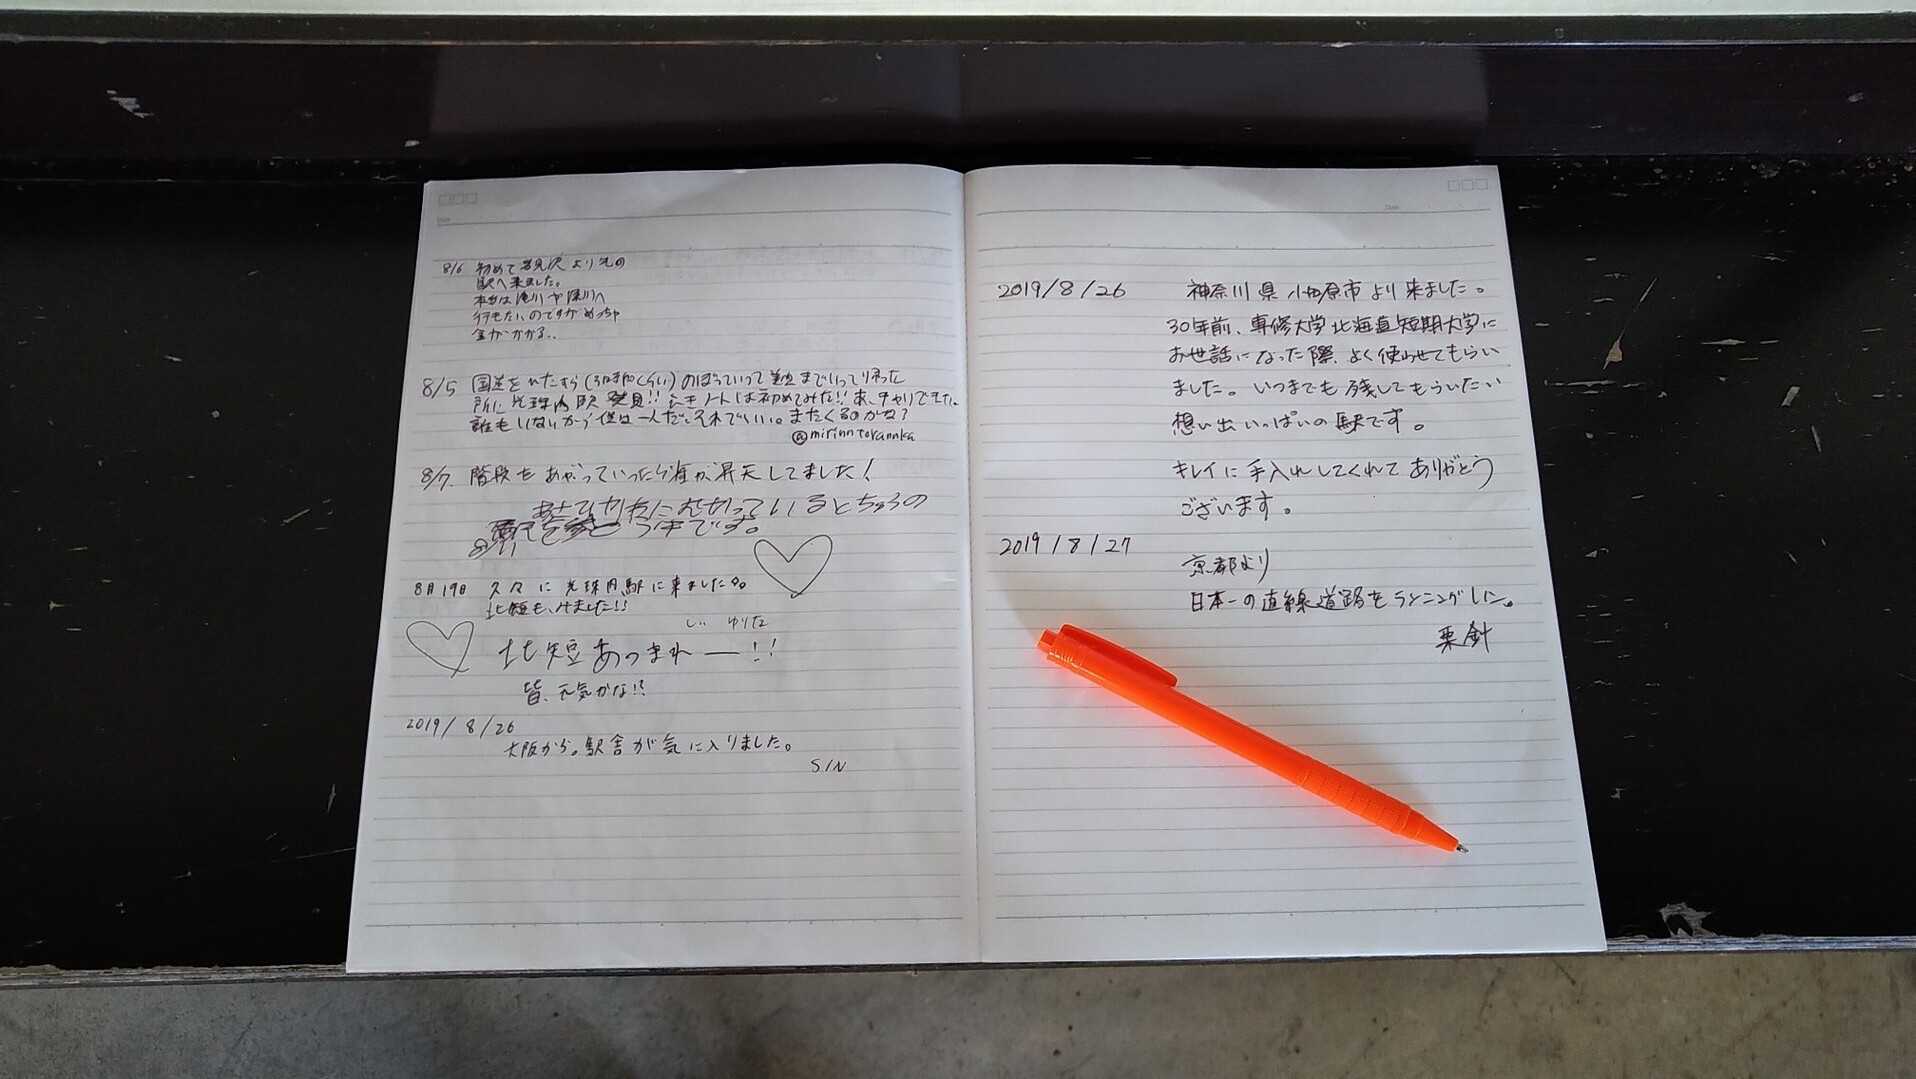 Date
8/6 初めて岩見沢よりこの
駅へ来ました。
本当は滝川や深川へ
行きたいのですがめっちゃ
金がかかる..
8/5 国道をひたすら(3時間くらい)のぼっていって まで いって
所に光珠内駅発見!! 駅ノートは初めてみた!! あ、チャリできた。
誰もいないから僕は一人だ。それでいい。またくるのかな?
@mirinntorannka
8/7. 階段を あがっていったら が 昇天してました!
あさひかわにむかっているとちゅうの
です。
8月19日 久々に光珠内駅に来ました
北短も、 ました!!
北短あつまれー!!
皆、元気かな!?
2019/8/26
大阪から。駅舎が気に入りました。
SIN
Date
2019/8/26 神奈川県小田原市より来ました。
30年前、専修大学北海道短期大学に
お世話になった際、よく使わせてもらい
ました。いつまでも残してもらいたい
想い出いっぱいの駅です。
キレイに手入れしてくれてありがとう
ございます。
2019/8/27
京都より
日本一の直線道路をランニングした。